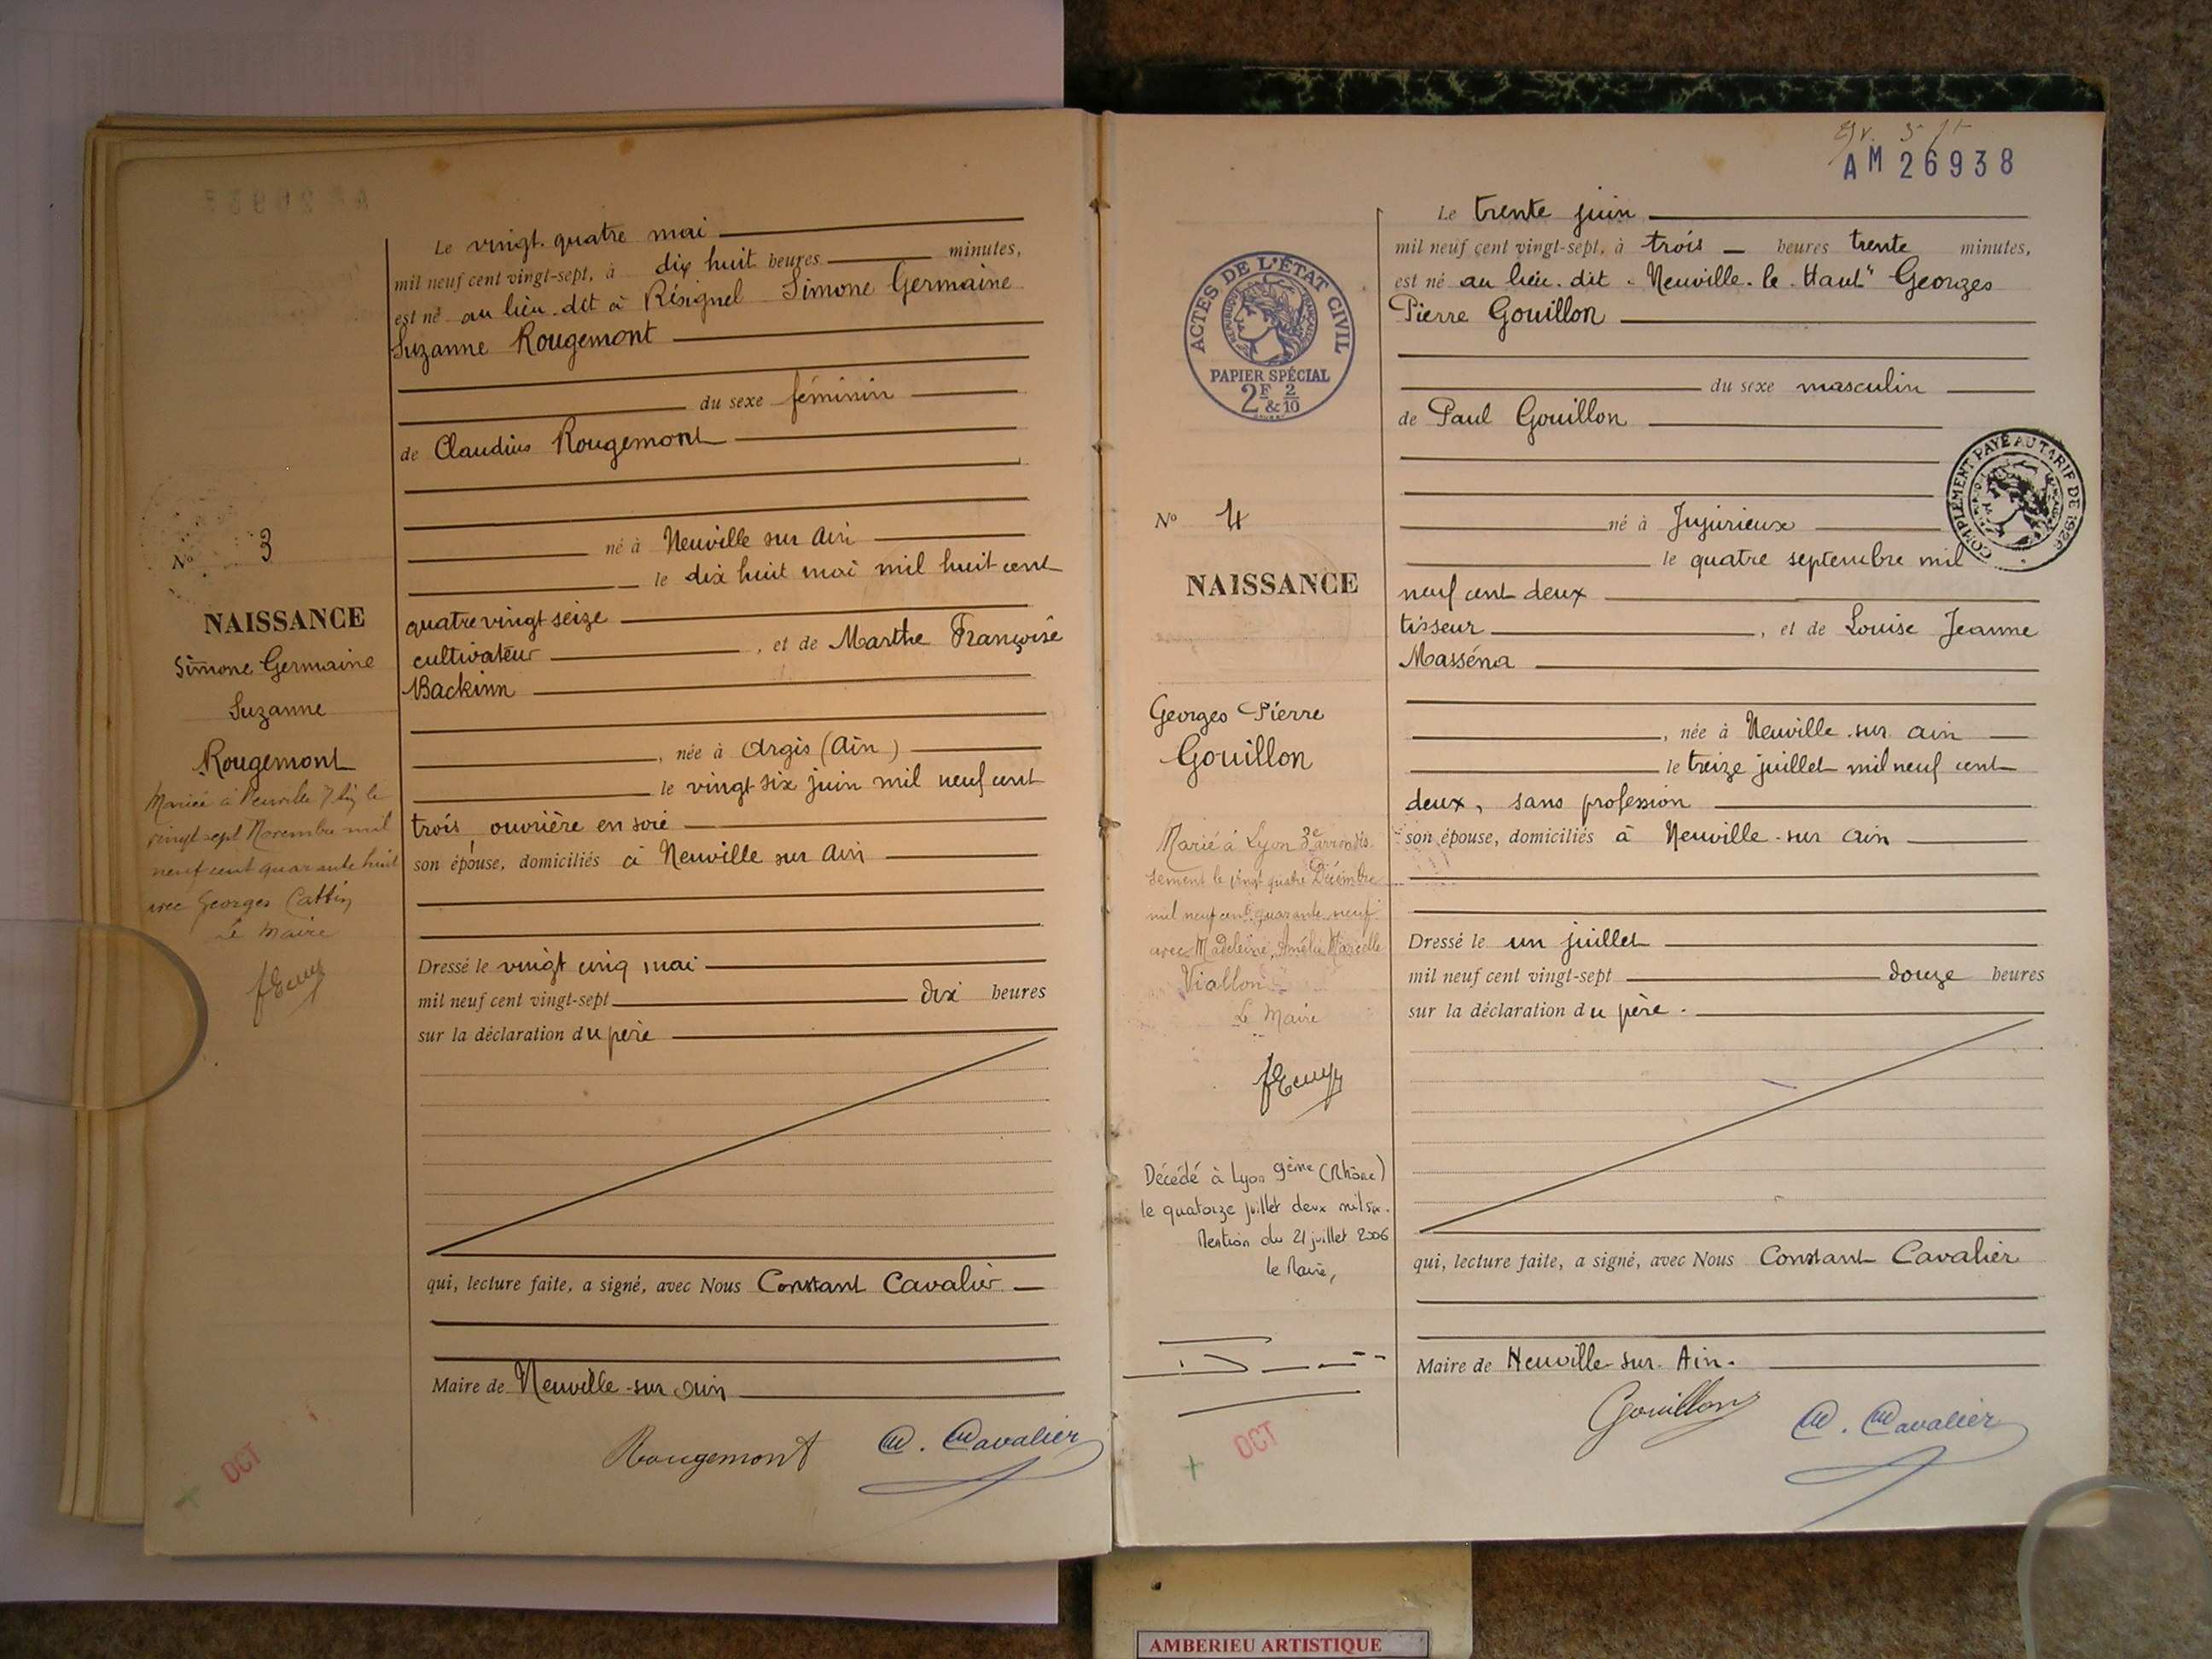 Le vingt-quatre mai
mil neuf cent vingt-sept, à dix huit heures minutes,
est né au lieu-dit à Résignel Simone Germaine
Suzanne Rougemont
du sexe féminin
de Claudius Rougemont
né à Neuville sur Ain
le dix huit mai mil huit cent
quatre vingt seize
cultivateur , et de Marthe Françoise
Backinn
, née à Argis (Ain)
le vingt-six juin mil neuf cent
trois ouvrière en soie
son épouse, domiciliés à Neuville sur Ain
Dressé le vingt cinq mai
mil neuf cent vingt-sept dix heures
sur la déclaration du père
qui, lecture faite, a signé, avec Nous Constant Cavalier
Maire de Neuville-sur-Ain
Rougemont C. Cavalier
No 3
NAISSANCE
Simone Germaine
Suzanne
Rougemont
Mariée à Neuville s/Ain le
vingt-sept Novembre mil
neuf cent quarante huit
avec Georges Cattin
Le Maire
OCT
5
AM 26938
Le trente juin
mil neuf cent vingt-sept, à trois heures trente minutes,
est né au lieu-dit "Neuville-le-Haut" Georges
Pierre Gouillon
du sexe masculin
de Paul Gouillon
né à Jujurieux
le quatre septembre mil
neuf cent deux
tisseur , et de Louise Jeanne
Masséna
, née à Neuville-sur-Ain
le treize juillet mil neuf cent
deux, sans profession
son épouse, domiciliés à Neuville-sur-Ain
Dressé le un juillet
mil neuf cent vingt-sept douze heures
sur la déclaration du père.
qui, lecture faite, a signé, avec Nous Constant Cavalier
Maire de Neuville-sur-Ain.
Gouillon C. Cavalier
ACTES DE L'ÉTAT CIVIL
RÉPUBLIQUE FRANÇAISE
PAPIER SPÉCIAL
2F & 2/10
COMPLÉMENT PAYÉ AU TARIF DE 1926
No 4
NAISSANCE
Georges Pierre
Gouillon
Marié à Lyon 3e arrondis-
sement le vingt quatre Décembre
mil neuf cent quarante neuf
avec Madeleine, Amélie Marcelle
Viallon
Le Maire
Décédé à Lyon 9ème (Rhône)
le quatorze juillet deux mil six.
Mention du 21 juillet 2006
le Maire,
OCT
AMBERIEU ARTISTIQUE